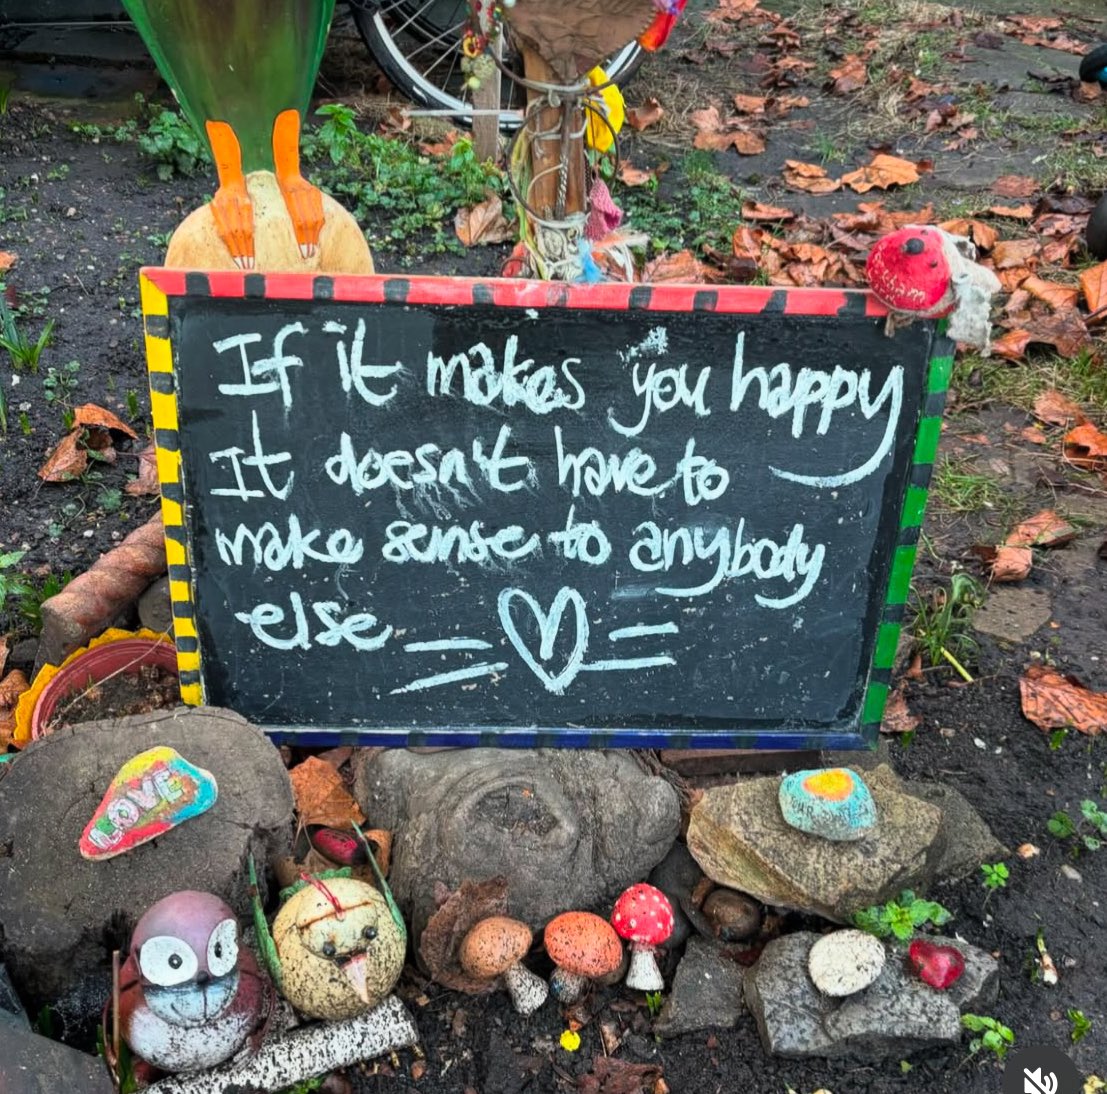 If it makes you happy
It doesn't have to
make sense to anybody
else
LOVE